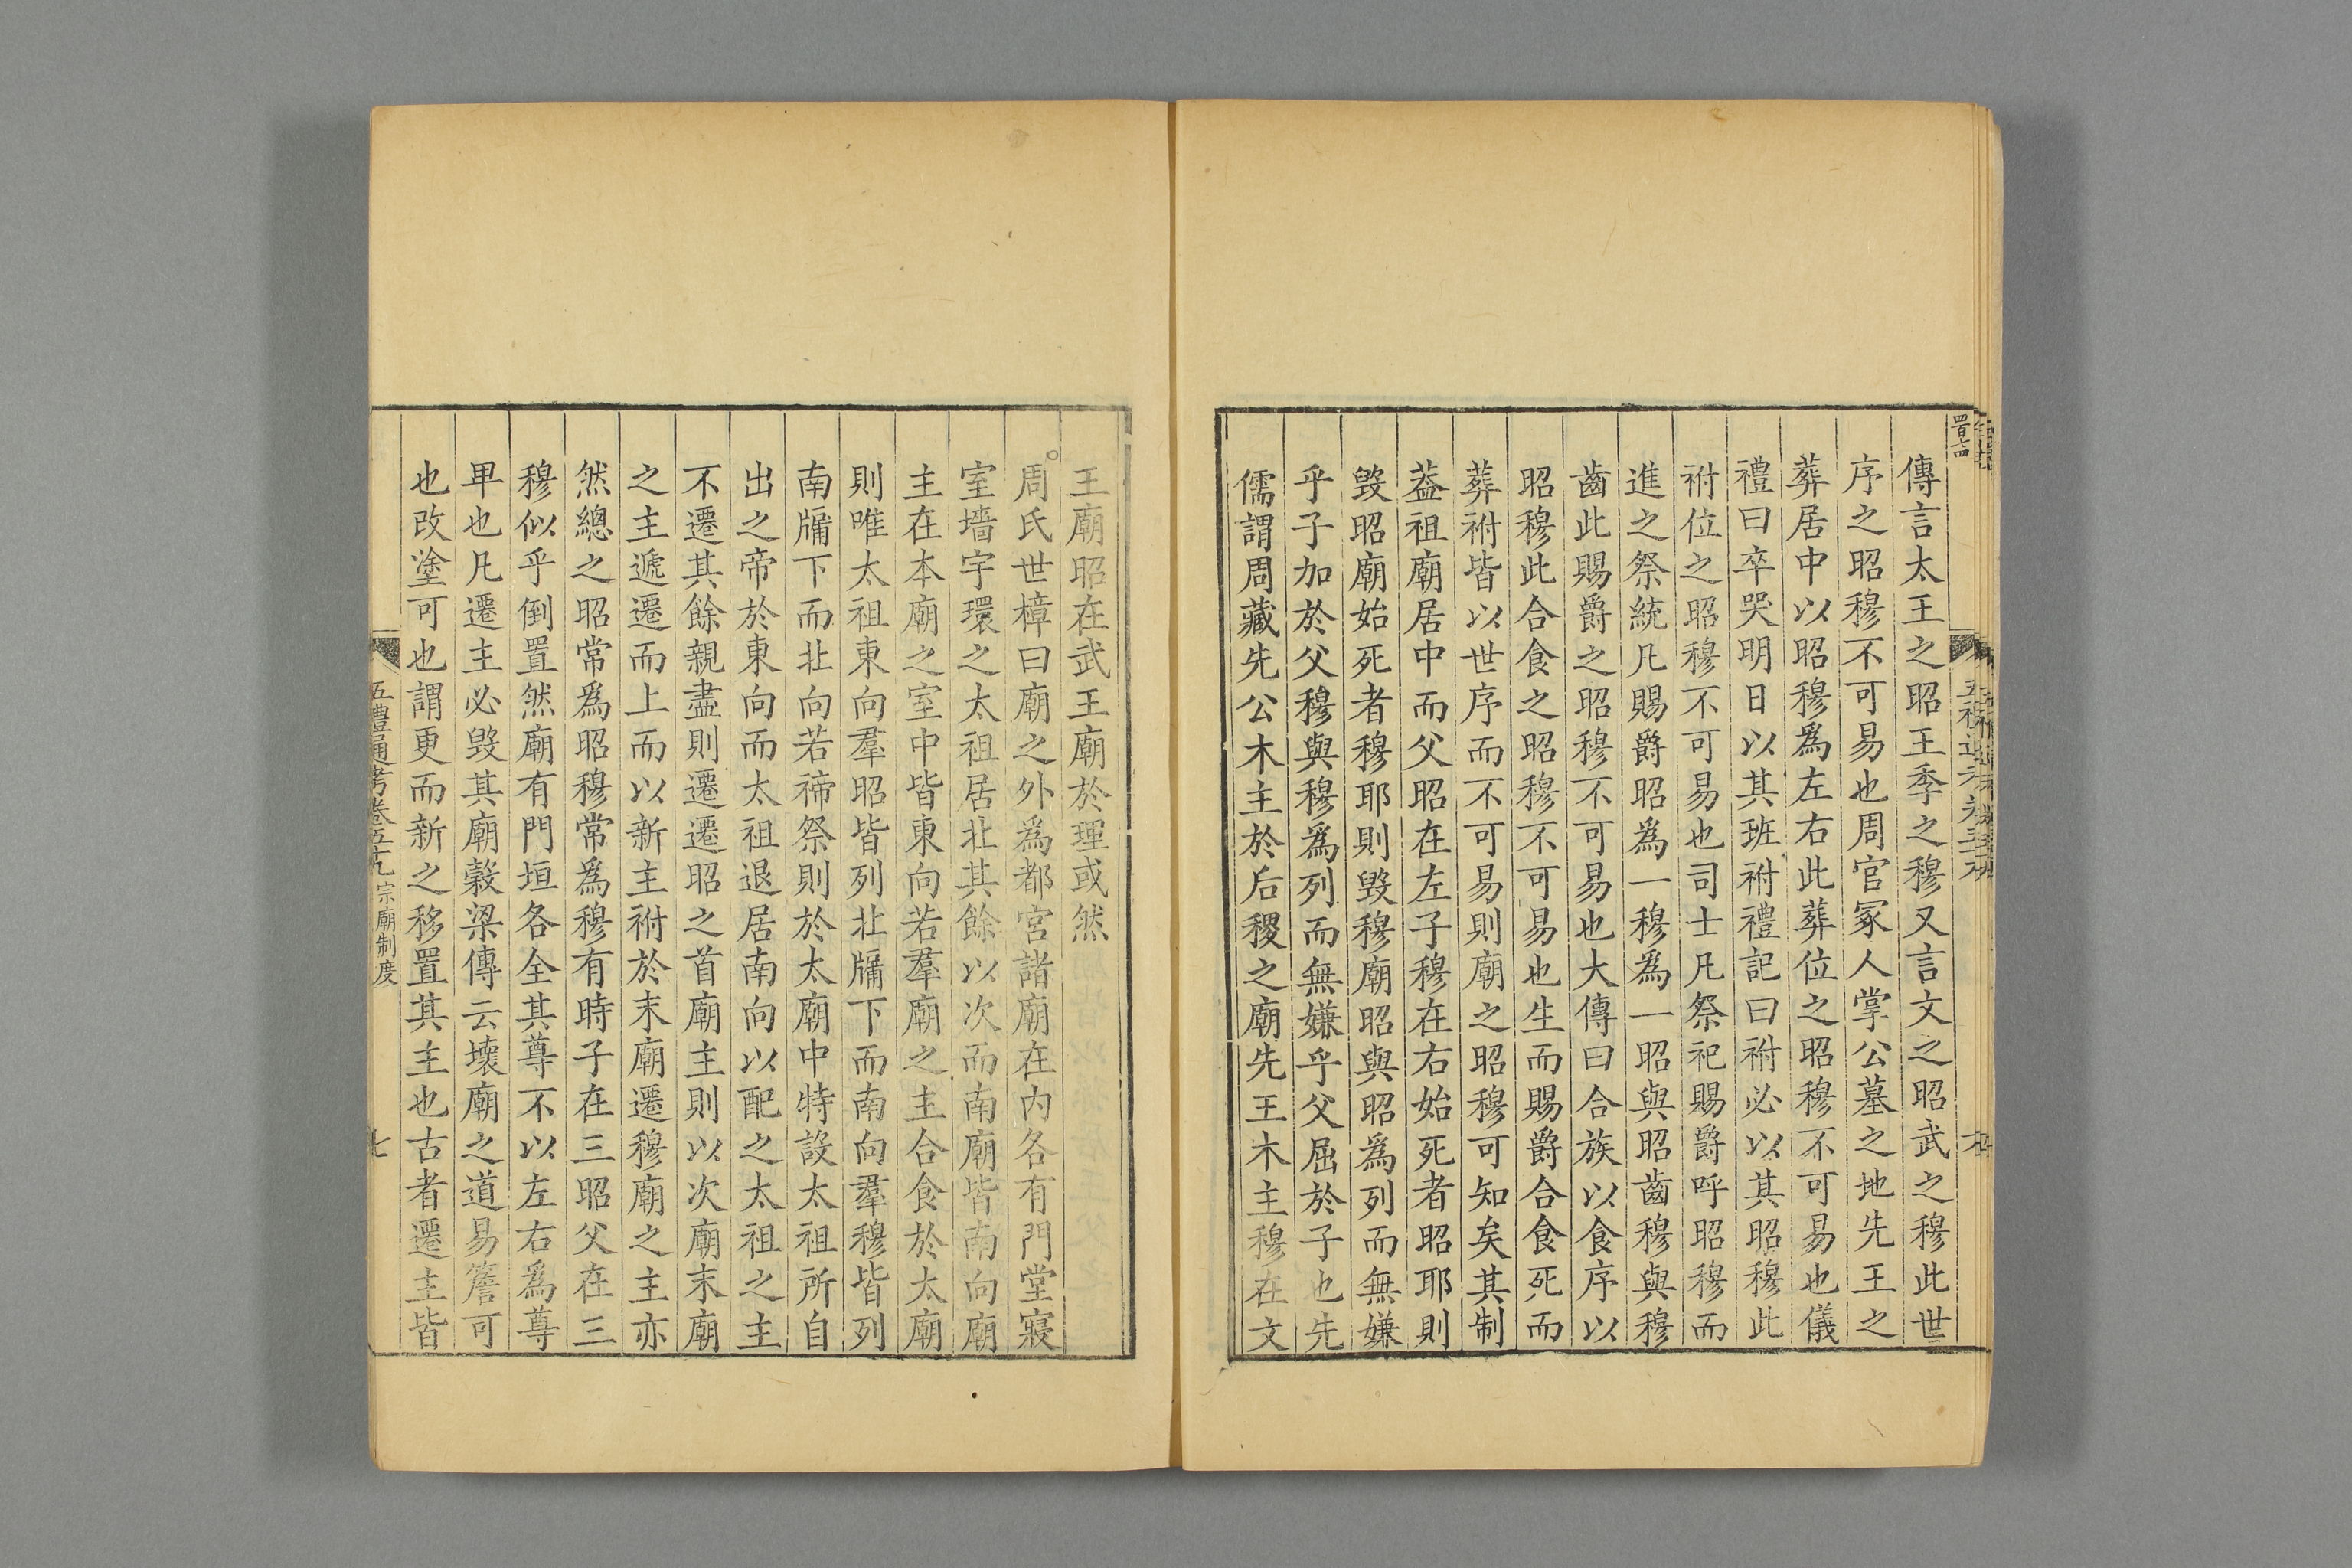 傳言太王之昭王季之穆又言文之昭武之穆此世
序之昭穆不可易也周官冢人掌公墓之地先王之
葬居中以昭穆爲左右此葬位之昭穆不可易也儀
禮曰卒哭明日以其班祔禮記曰祔必以其昭穆此
祔位之昭穆不可易也司士凡祭祀賜爵呼昭穆而
進之祭統凡賜爵昭爲一穆爲一昭與昭齒穆與穆
齒此賜爵之昭穆不可易也大傳曰合族以食序以
昭穆此合食之昭穆不可易也生而賜爵合食死而
葬祔皆以世序而不可易則廟之昭穆可知矣其制
葢祖廟居中而父昭在左子穆在右始死者昭耶則
毁昭廟始死者穆耶則毁穆廟昭與昭爲列而無嫌
乎子加於父穆與穆爲列而無嫌乎父屈於子也先
儒謂周藏先公木主於后稷之廟先王木主穆在文
王廟昭在武王廟於理或然
周氏世樟曰廟之外爲都宮諸廟在内各有門堂寢
室墻宇環之太祖居北其餘以次而南廟皆南向廟
主在本廟之室中皆東向若羣廟之主合食於太廟
則唯太祖東向羣昭皆列北牖下而南向羣穆皆列
南牖下而北向若禘祭則於太廟中特設太祖所自
出之帝於東向而太祖退居南向以配之太祖之主
不遷其餘親盡則遷遷昭之首廟主則以次廟末廟
之主遞遷而上而以新主祔於末廟遷穆廟之主亦
然總之昭常爲昭穆常爲穆有時子在三昭父在三
穆似乎倒置然廟有門垣各全其尊不以左右爲尊
甲也凡遷主必毁其廟榖梁傳云壞廟之道易簷可
也改塗可也謂更而新之移置其主也古者遷主皆
五禮通考卷五十九 宗廟制度
七